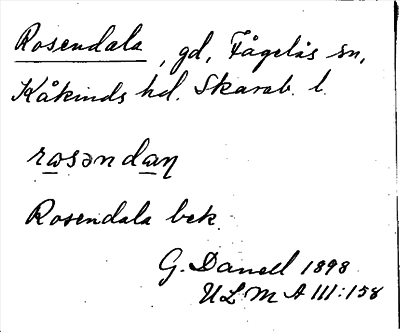 Rosendala, gd, Fågelås sn,
Kåkinds hd. Skarab. l.
rosəndaŋ
Rosendala bek.
G. Danell 1898
ULMA A III:158